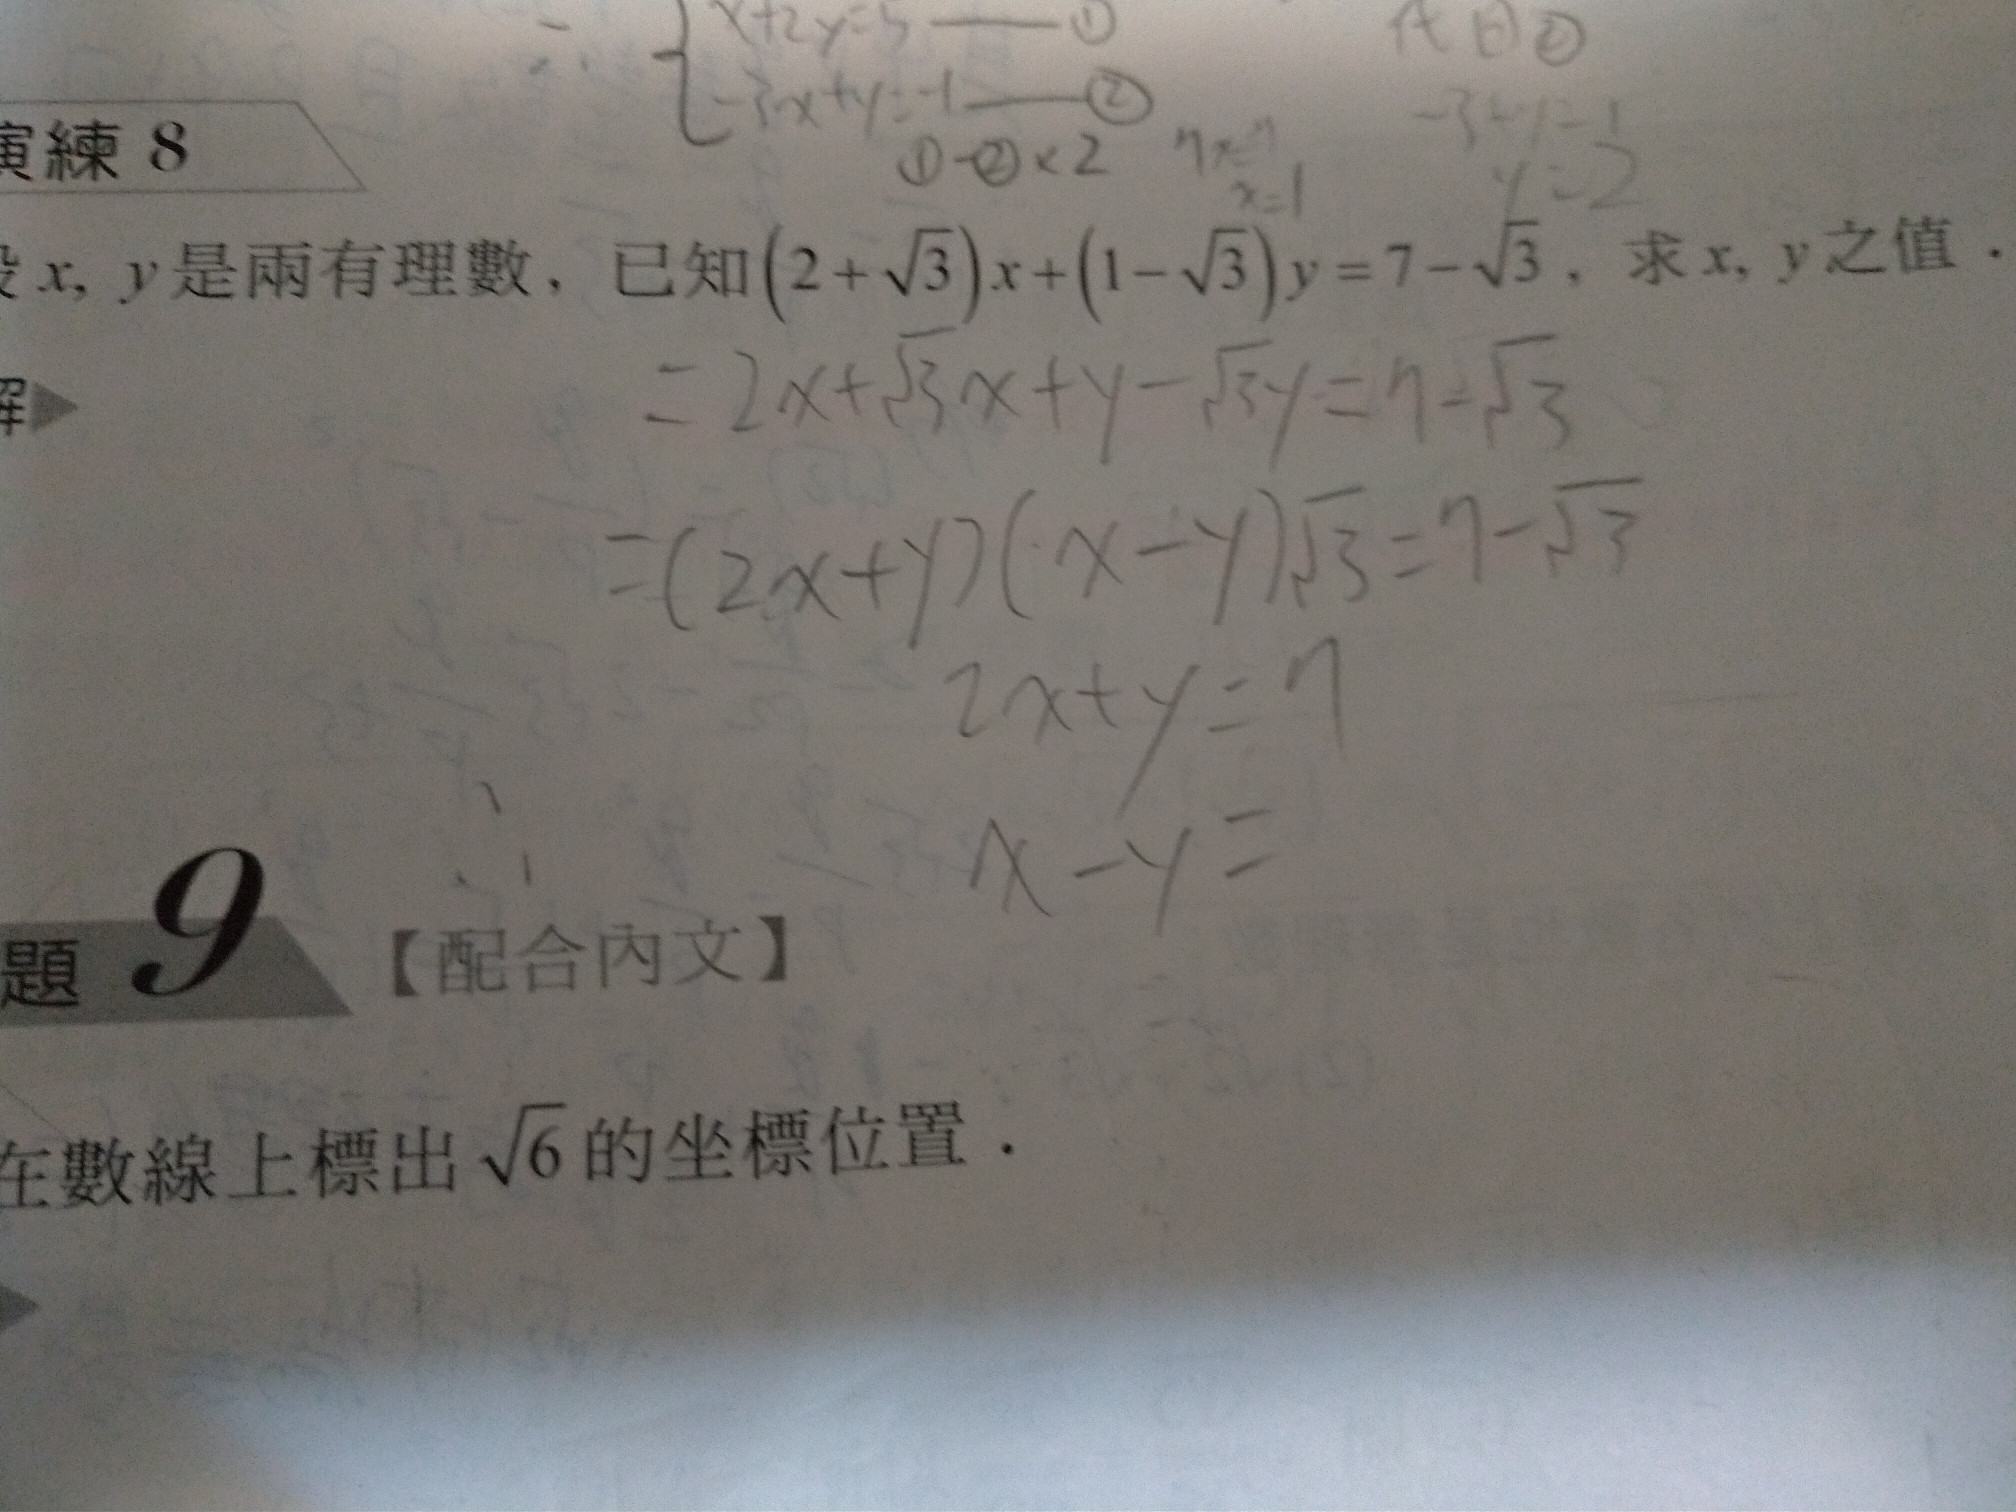 x+2y=5 ——① 代回②
-3x+y=-1 ——② -3+y=-1
①-②×2 7x=7 y=2
x=1
演練 8
設 x, y 是兩有理數，已知(2+√3)x+(1-√3)y=7-√3，求 x, y 之值．
解▶
=2x+√3x+y-√3y=7-√3
=(2x+y)(x-y)√3=7-√3
2x+y=7
x-y=
題 9 【配合內文】
在數線上標出 √6 的坐標位置．